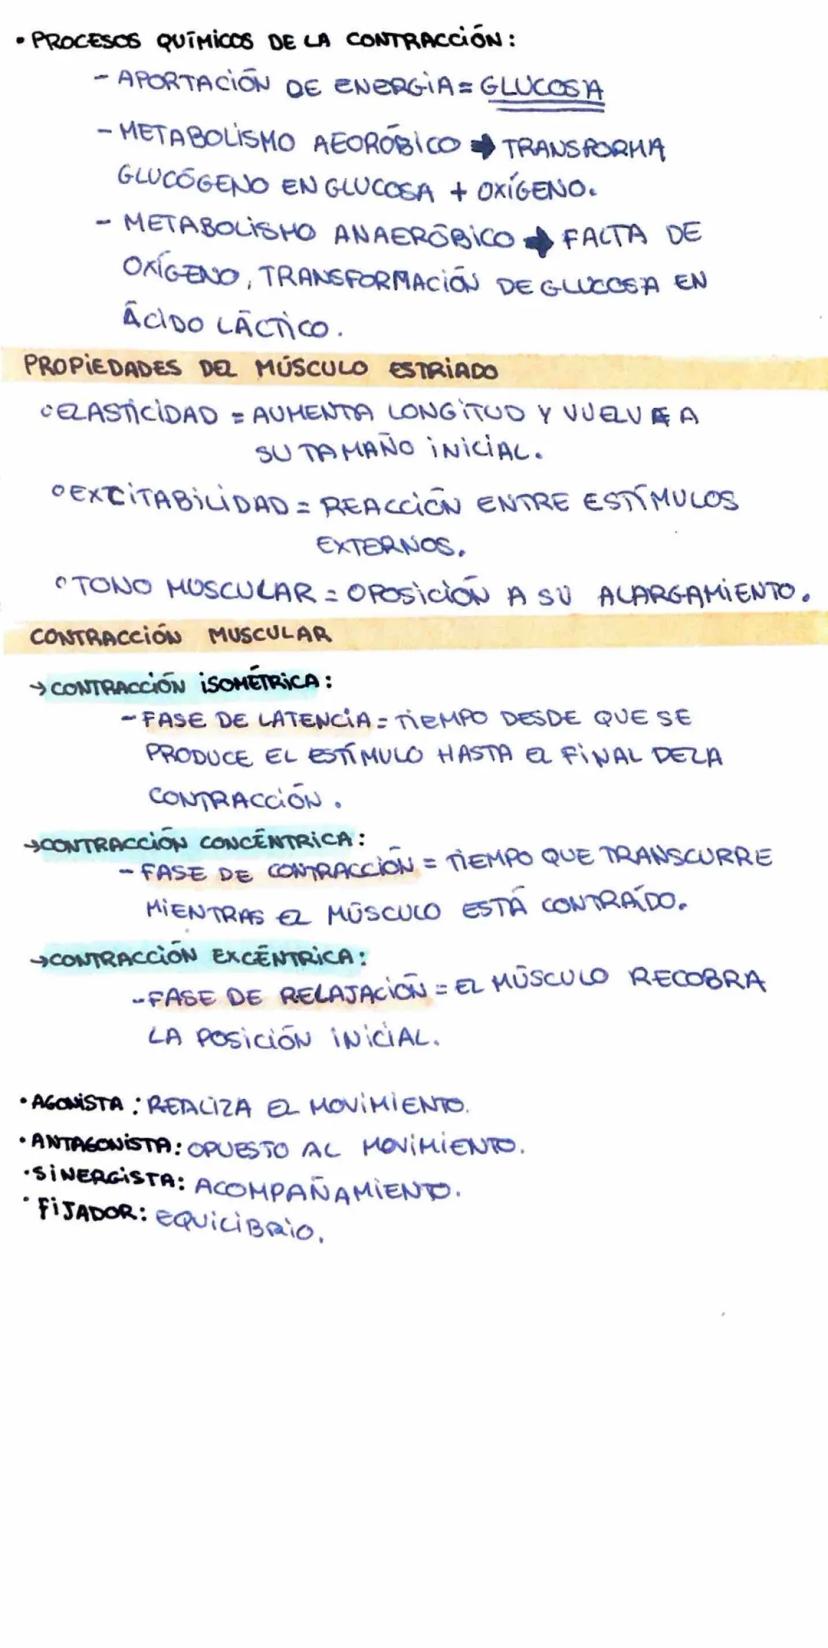 • PROCESOS QUÍMICOS DE LA CONTRACCIÓN:
- APORTACIÓN DE ENERGIA = GLUCOSA
- METABOLISMO AEORÓBICO → TRANSFORMA
GLUCÓGENO EN GLUCOSA + OXÍGENO.
- METABOLISMO ANAERÓBICO → FALTA DE
OXÍGENO, TRANSFORMACIÓN DE GLUCOSA EN
ÁCIDO LÁCTICO.
PROPIEDADES DEL MÚSCULO ESTRIADO
° ELASTICIDAD = AUMENTA LONGITUD Y VUELVE A
SU TAMAÑO INICIAL.
° EXCITABILIDAD = REACCIÓN ENTRE ESTÍMULOS
EXTERNOS.
° TONO MUSCULAR = OPOSICIÓN A SU ALARGAMIENTO.
CONTRACCIÓN MUSCULAR
→ CONTRACCIÓN ISOMÉTRICA:
- FASE DE LATENCIA = TIEMPO DESDE QUE SE
PRODUCE EL ESTÍMULO HASTA EL FINAL DE LA
CONTRACCIÓN.
→ CONTRACCIÓN CONCÉNTRICA:
- FASE DE CONTRACCIÓN = TIEMPO QUE TRANSCURRE
MIENTRAS EL MÚSCULO ESTÁ CONTRAÍDO.
→ CONTRACCIÓN EXCÉNTRICA:
- FASE DE RELAJACIÓN = EL MÚSCULO RECOBRA
LA POSICIÓN INICIAL.
• AGONISTA: REALIZA EL MOVIMIENTO.
• ANTAGONISTA: OPUESTO AL MOVIMIENTO.
• SINERGISTA: ACOMPAÑAMIENTO.
• FIJADOR: EQUILIBRIO.